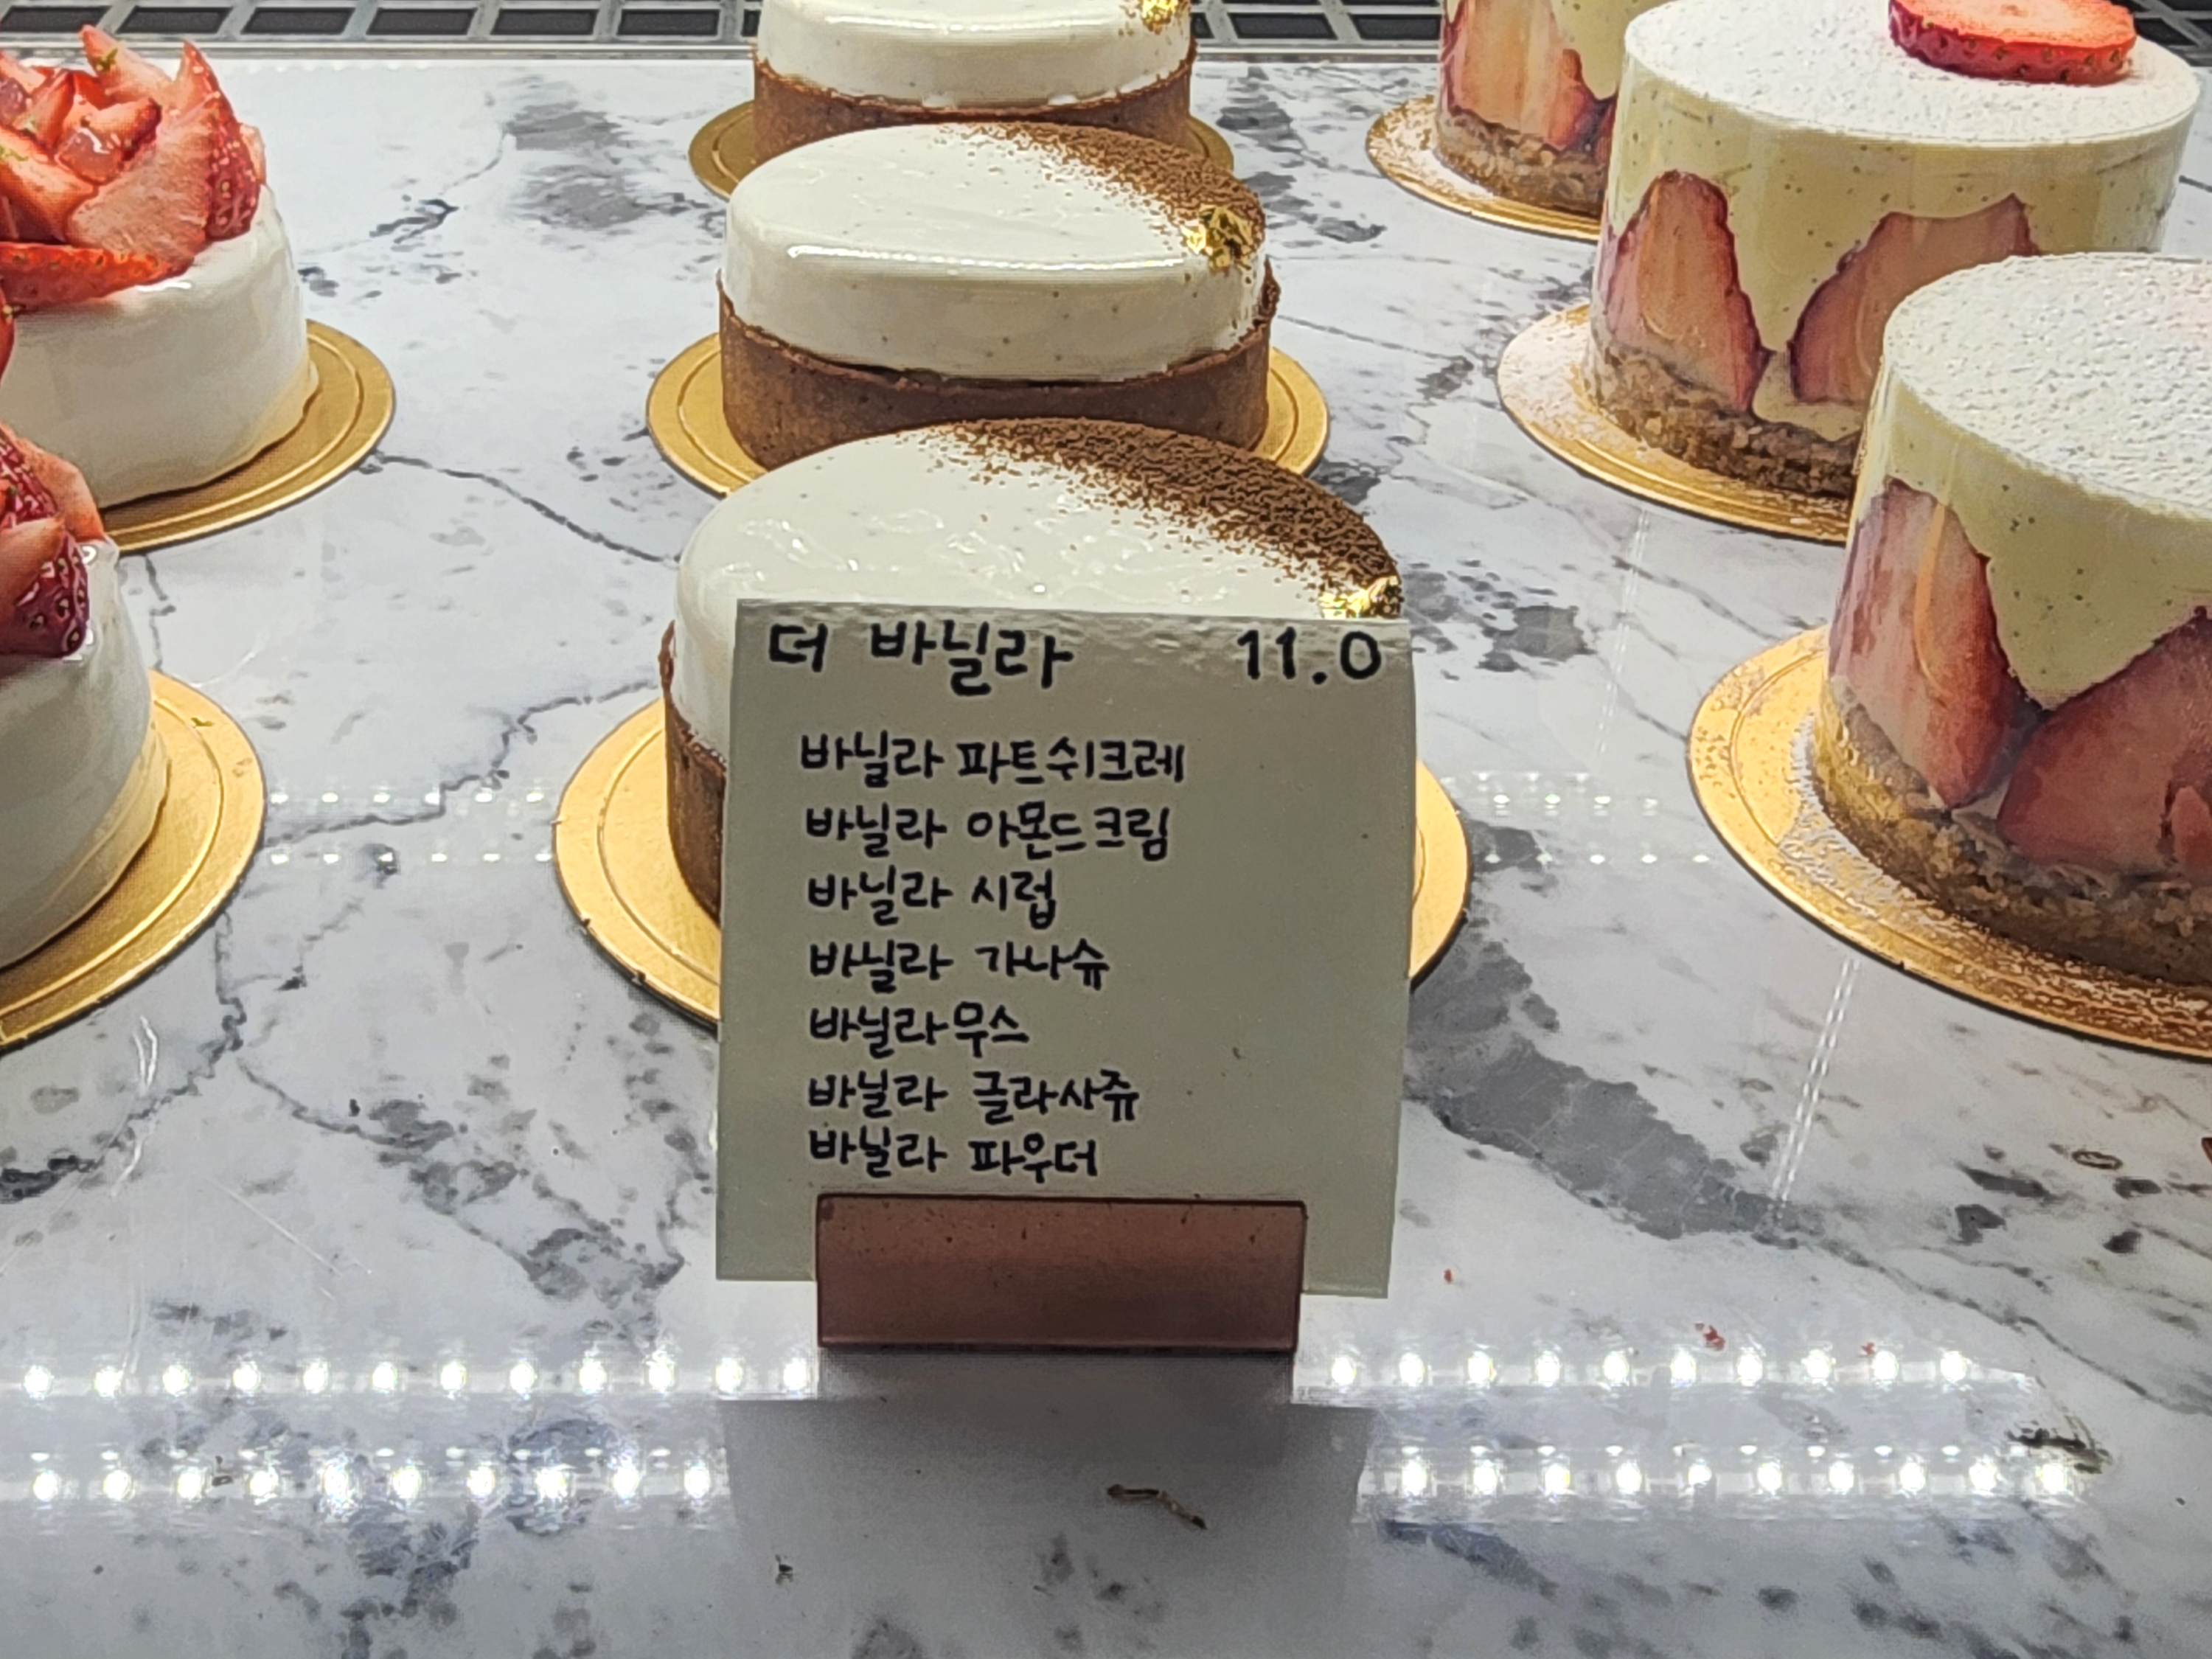 더 바닐라 11.0
바닐라 파트쉬크레
바닐라 아몬드크림
바닐라 시럽
바닐라 가나슈
바닐라 무스
바닐라 글라사쥬
바닐라 파우더